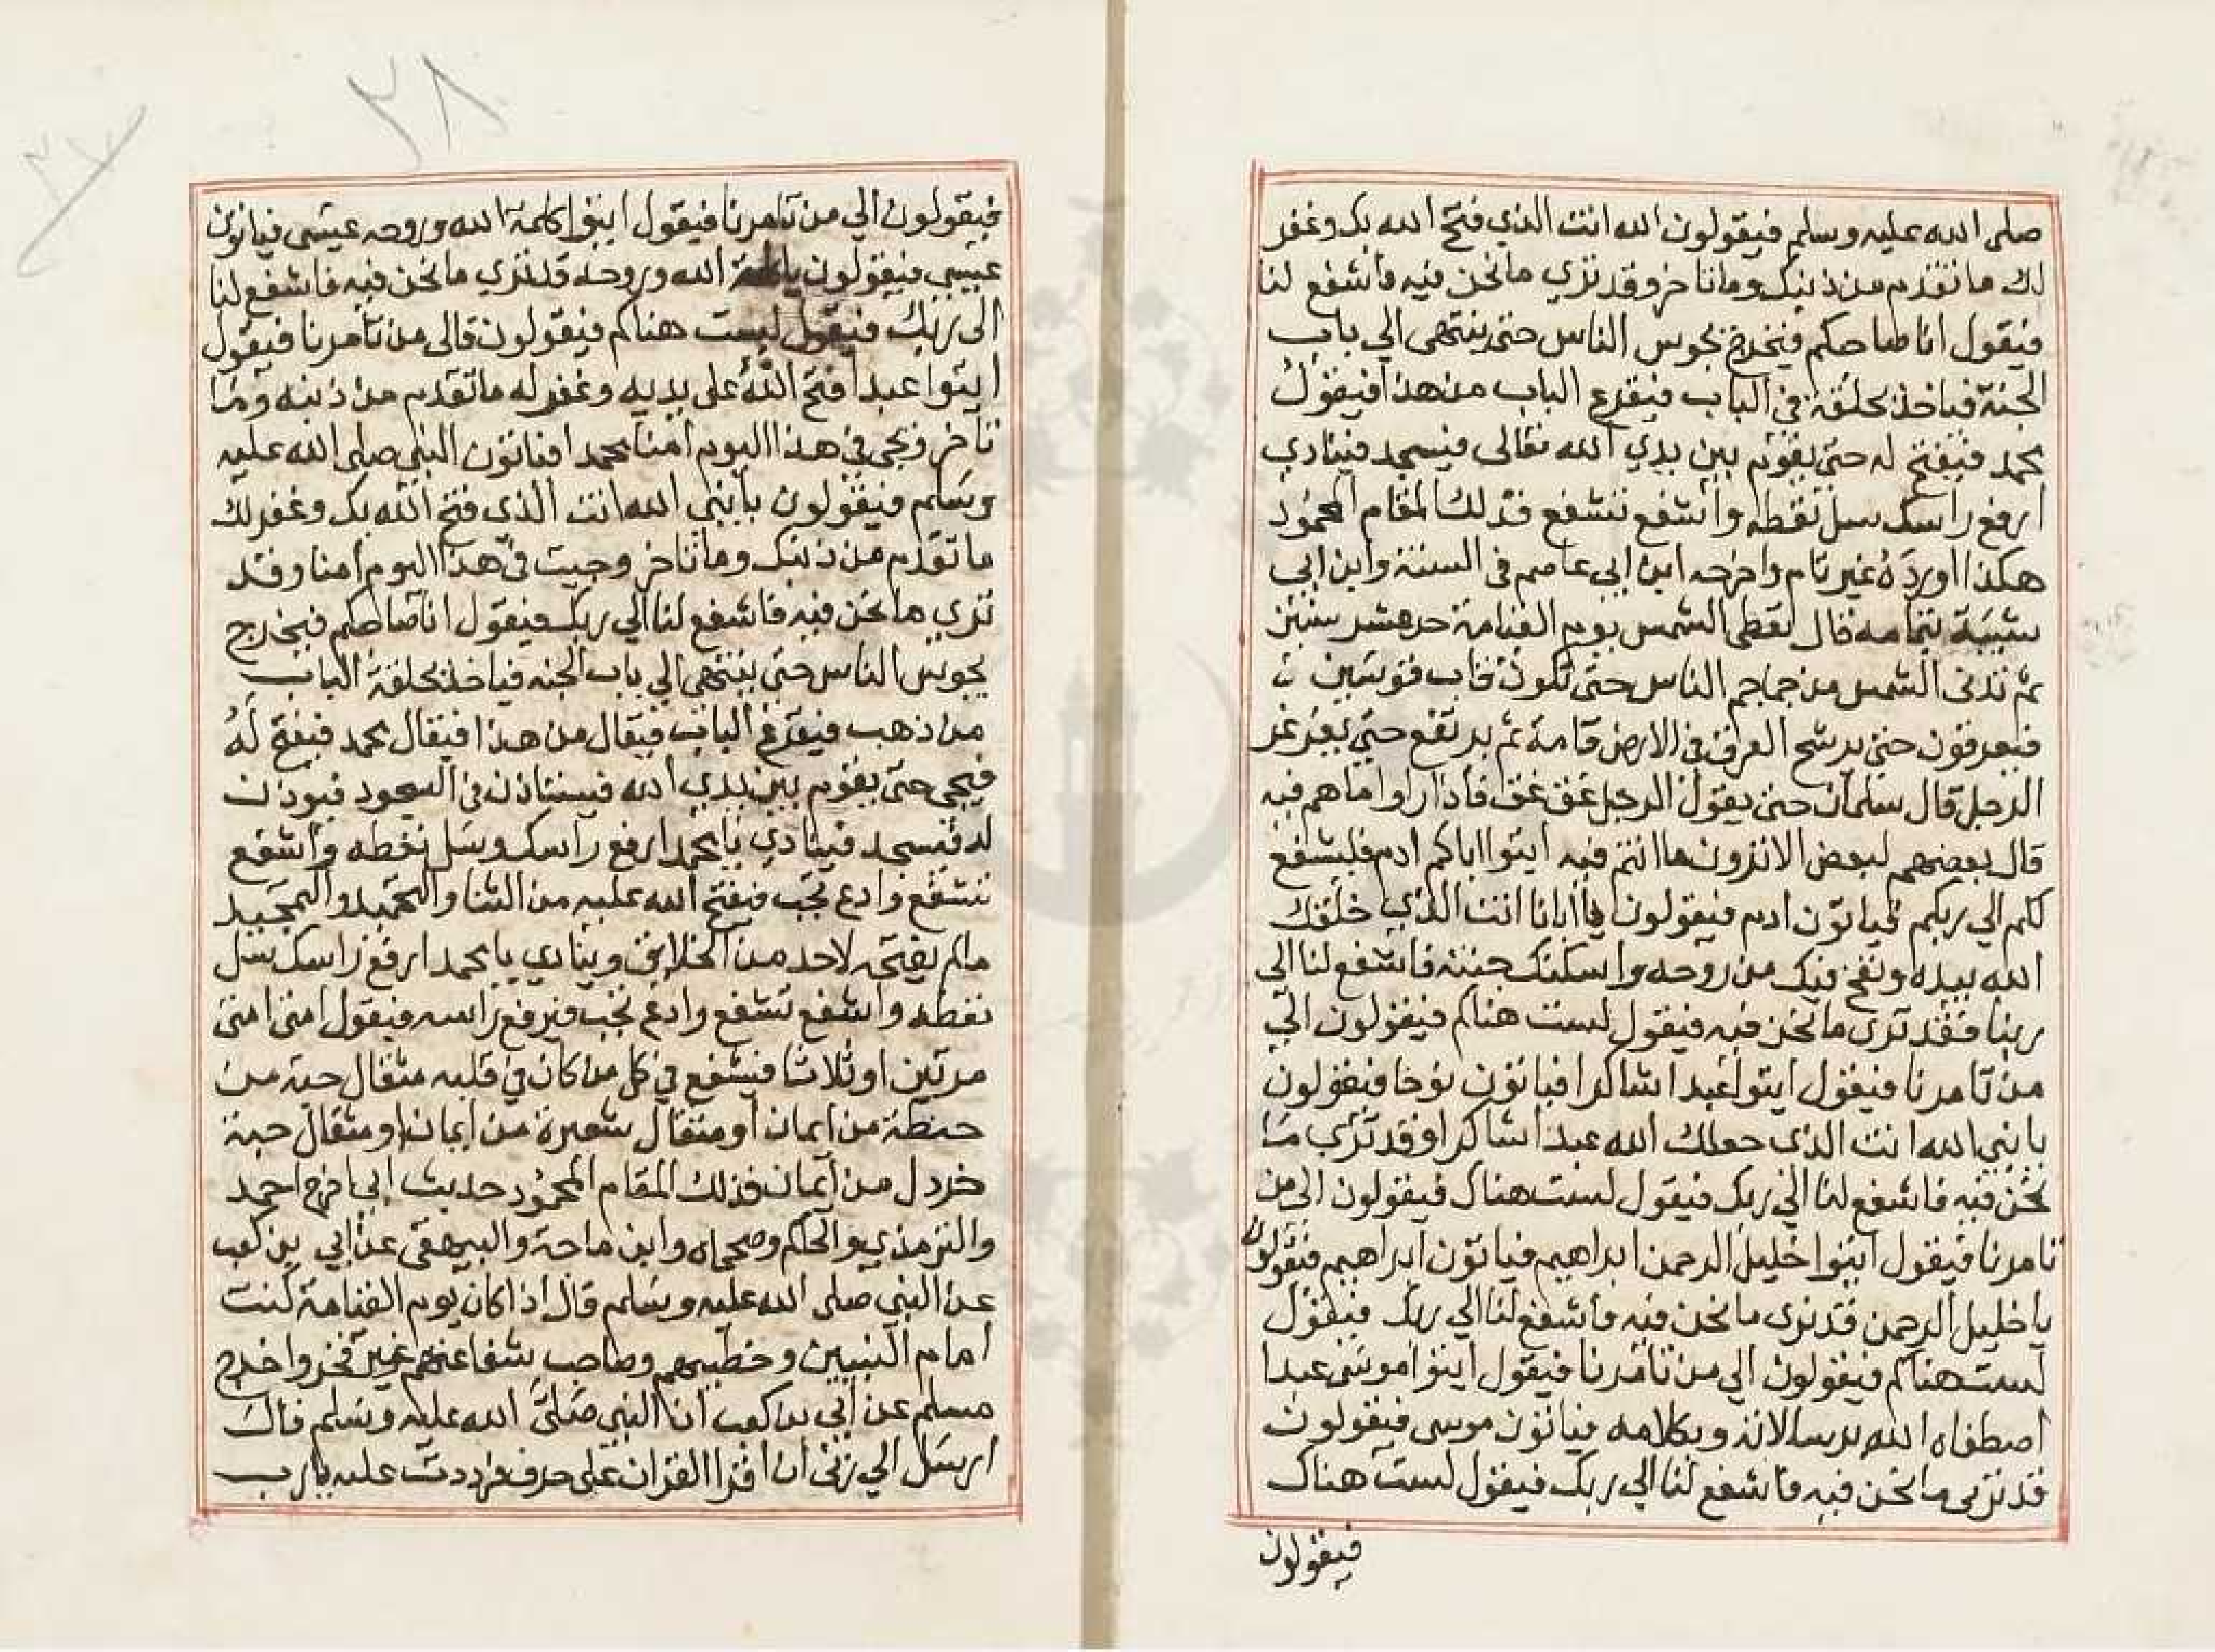 صلى الله عليه وسلم فيقولون الله انت الذي فتح الله بك وغفر
لك ما تقدم من ذنبك وما تاخر وقد تري ما نحن فيه فاشفع لنا
فيقول انا صاحبكم فيخرج يجوس الناس حتى ينتهى الي باب
الجنة فياخذ بحلقة في الباب فيقرع الباب من هذا فيقول
محمد فيفتح له حتى يقوم بين يدي الله تعالى فيسجد فينادي
ارفع راسك سل تعطه واشفع تشفع فذلك المقام المحمود
هكذا اورده غير تام واخرجه ابن ابي عاصم في السنة وابن ابي
شيبة بتمامه قال تعطى الشمس يوم القيامة حر عشر سنين
ثم تدنى الشمس من جماجم الناس حتى تكون قاب قوسين
فيعرقون حتى يرشح العرق في الارض قامة ثم يرتفع حتى يغرغر
الرجل قال سلمان حتى يقول الرجل غق غق فاذا راوا ما هم فيه
قال بعضهم لبعض الا ترون ما انتم فيه ايتوا اباكم ادم فليشفع
لكم الي ربكم فياتون ادم فيقولون يا ابانا انت الذي خلقك
الله بيده ونفخ فيك من روحه واسكنك جنته فاشفع لنا الى
ربنا فقد ترى ما نحن فيه فيقول لست هناكم فيقولون الي
من تامرنا فيقول ايتوا عبدا شاكرا فياتون نوحا فيقولون
يا نبي الله انت الذي جعلك الله عبدا شاكرا وقد ترى ما
نحن فيه فاشفع لنا الي ربك فيقول لست هناك فيقولون الى من
تامرنا فيقول ايتوا خليل الرحمن ابراهيم فياتون ابراهيم فيقولون
يا خليل الرحمن قد ترى ما نحن فيه فاشفع لنا الي ربك فيقول
لست هناكم فيقولون الي من تامرنا فيقول ايتوا موسى عبدا
اصطفاه الله برسالاته وبكلامه فياتون موسى فيقولون
قد ترى ما نحن فيه فاشفع لنا الي ربك فيقول لست هناك
فيقولون
٢٨
فيقولون الي من تامرنا فيقول ايتوا كلمة الله وروحه عيسى فياتون
عيسى فيقولون يا كلمة الله وروحه قد ترى ما نحن فيه فاشفع لنا
الى ربك فيقول لست هناكم فيقولون فالى من تامرنا فيقول
ايتوا عبدا فتح الله على يديه وغفر له ما تقدم من ذنبه وما
تاخر ويجى في هذا اليوم امنا محمدا فياتون النبي صلى الله عليه
وسلم فيقولون يا نبي الله انت الذي فتح الله بك وغفر لك
ما تقدم من ذنبك وما تاخر وجيت في هذا اليوم امنا وقد
تري ما نحن فيه فاشفع لنا الي ربك فيقول انا صاحبكم فيخرج
يجوس الناس حتى ينتهى الي باب الجنه فياخذ بحلقة الباب
من ذهب فيقرع الباب فيقال من هذا فيقال محمد فيفتح له
فيجي حتى يقوم بين يدي الله فيستاذن في السجود فيوذن
له فيسجد فينادي يا محمد ارفع راسك وسل تعطه واشفع
تشفع وادع تجب فيفتح الله عليه من الثنا والتحميد والتمجيد
مالم يفتحه لاحد من الخلايق وينادي يا محمد ارفع راسك سل
تعطه واشفع تشفع وادع تجب فيرفع راسه فيقول امتى امتى
مرتين او ثلاثا فيشفع في كل من كان في قلبه مثقال حبة من
حنطة من ايمان او مثقال شعيرة من ايمان او مثقال حبة
خردل من ايمان فذلك المقام المحمود حديث اخرج احمد
والترمذي والحاكم وصححاه وابن ماجة والبيهقى عن ابي بن كعب
عن النبي صلى الله عليه وسلم قال اذا كان يوم القيامة كنت
امام النبيين وخطيبهم وصاحب شفاعتهم غير فخر واخرج
مسلم عن ابي بن كعب ان النبي صلى الله عليه وسلم قال
ارسل الي ربى ان اقرا القران على حرف فرددت عليه يا رب